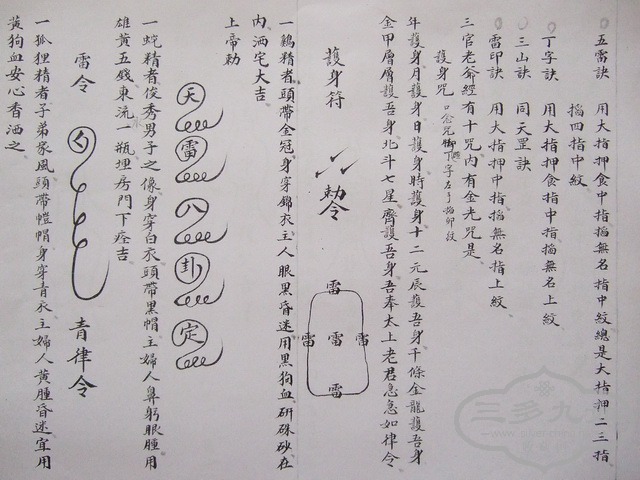 五雷訣　用大指押食中指掐無名指中紋總是大指押二三指
掐四指中紋
丁字訣　用大指押食指中指掐無名上紋
三山訣　同天罡訣
雷印訣　用大指押中指掐無名指上紋
三官老爺經有十咒內有金光咒是
護身咒　口念咒脚下字左手掐卯紋
年護身月護身日護身時護身十二元辰護吾身千條金龍護吾身
金甲層層護吾身北斗七星齊護吾身吾奉太上老君急急如律令
護身符　敕令　雷　雷　雷　雷　雷
一鷄精者頭帶金冠身穿錦衣主人眼黑昏迷用黑狗血研硃砂在
內洒宅大吉
上帝勅
天　雷　八　卦　定
一蛇精者俊秀男子之像身穿白衣頭帶黑帽主婦人鼻駒眼腫用
雄黃五錢東流一瓶埋房門下痊吉
雷令　青律令
一狐狸精者子弟家風頭帶氊帽身穿青衣主婦人黃腫昏迷宜用
黃狗血安心香洒之
三多九